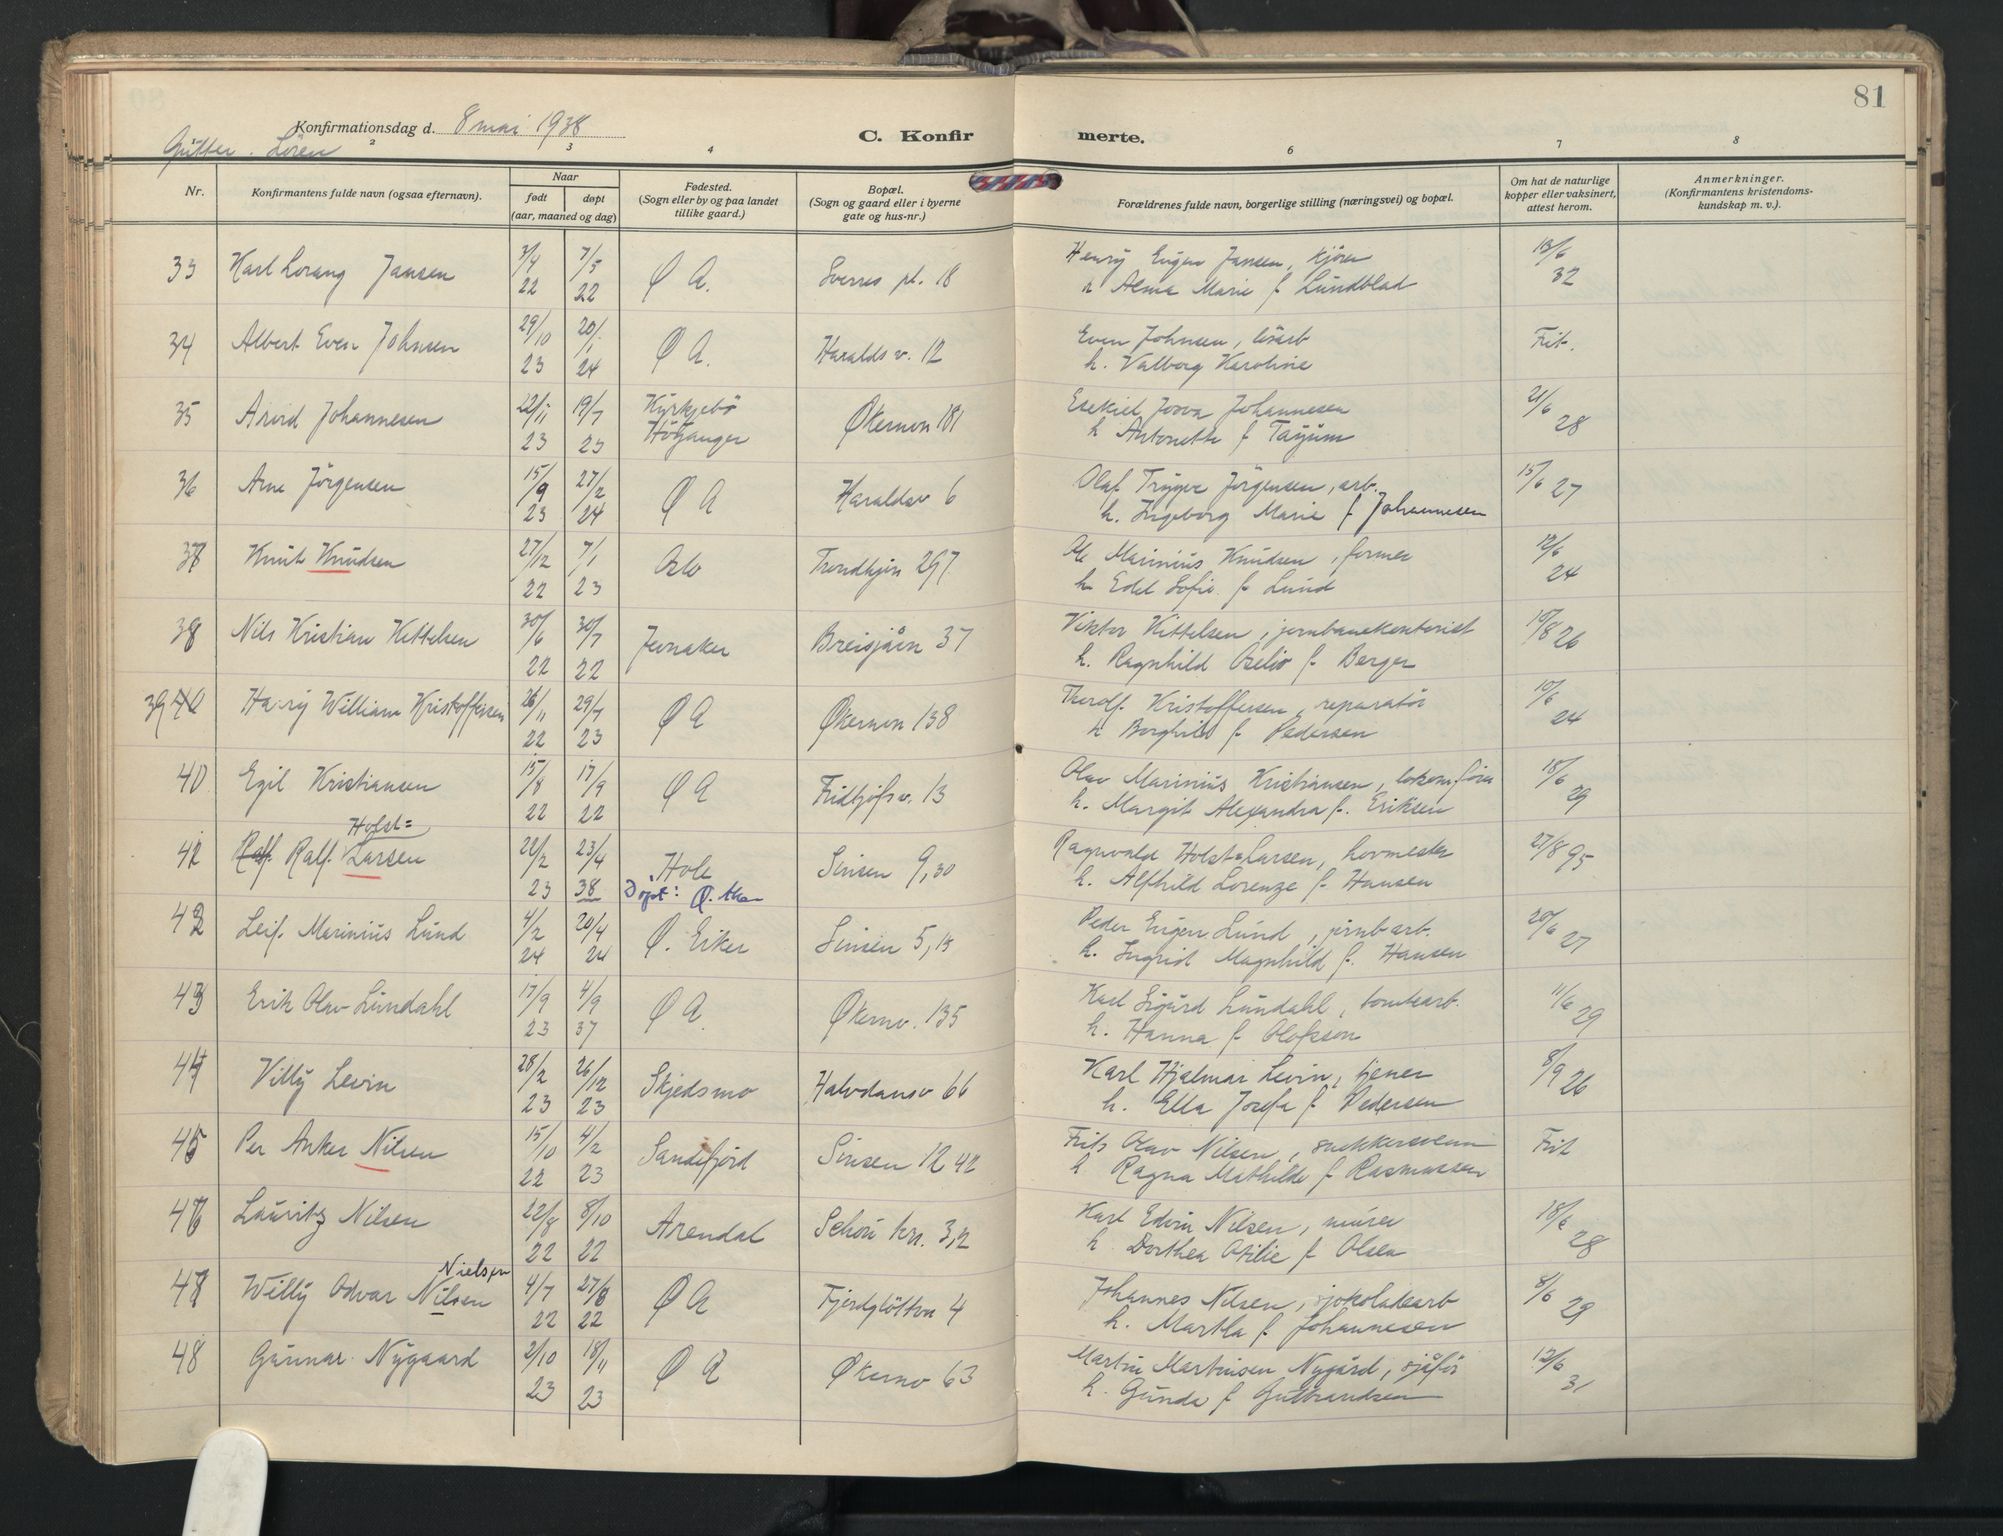 81
Konfirmationsdag d. 8 mai 1938
C. Konfir merte.
Gutter. Løren
2 3 4 6 7 8
Nr.
Konfirmantens fulde navn (ogsaa efternavn).
Naar
født døpt
(aar, maaned og dag)
Fødested.
(Sogn eller by og paa landet
tillike gaard.)
Bopæl.
(Sogn og gaard eller i byerne
gate og hus-nr.)
Forældrenes fulde navn, borgerlige stilling (næringsvei) og bopæl.
Om hat de naturlige
kopper eller vaksinert,
attest herom.
Anmerkninger.
(Konfirmantens kristendoms-
kundskap m. v.).
33 Karl Lorang Jansen 3/4 7/5 Ø A. Sverres pl. 18 Henry Eugen Jansen, kjører 13/6
22 22 h Alma Marie f Lundblad 32
34 Albert Even Johnsen 29/10 20/1 Ø A. Haralds v. 12 Even Johnsen, løsarb Frit.
23 24 h. Valborg Karoline
35 Arvid Johannesen 22/11 19/7 Kyrkjebø Økernvn 181 Esekiel Johannesen 21/6
23 23 Høyanger h Antonette f 28
36 Arne Jörgensen 15/9 27/2 Ø A Haraldsv 6 Olaf Trygve Jörgensen, arb. 15/6 27
23 24 h. Ingeborg Marie f Johannesen
37 Knut Knudsen 27/12 7/1 Oslo Trondhjvn 297 Ole Marinius Knudsen, former 12/6
22 23 h Edel Sofie f Lund 24
38 Nils Kristian Kittelsen 30/6 30/7 Jevnaker Breisjåvn 37 Viktor Kittelsen, jernbanekontorist 10/8 26
22 22 h. Ragnhild Oselio f. Berger
39 40 Harry William Kristoffersen 26/11 29/7 Ø A Økernvn 138 Thorolf Kristoffersen, reparatør 10/6
22 23 h Borghild f Pedersen 24
40 Egil Kristiansen 15/8 17/9 Ø A Fridtjofsv. 13 Olav Marinius Kristiansen, lokom.fører 18/6
22 22 h. Margit Alexandra f. Eriksen 29
Holst=
41 Ralf. Ralf. Larsen 22/2 23/4 Hole Sinsen 9,30 Ragnvald Holst=Larsen, hovmester 27/8 95
23 38 Døpt: Ø. Aker h. Alfhild Lorenze f. Hansen
42 Leif. Marinius Lund 4/2 20/4 Ø. Eiker Sinsen 5,15 Peder Eugen Lund, jernb arb. 20/6
24 24 h. Ingrid Magnhild f. Hansen 27
43 Erik Olav Lundahl 17/9 4/9 Ø A. Økernv. 135 Karl Sigurd Lundahl, tomtearb. 11/6
23 37 h. Hanna f Olofsson 29
44 Villy Levin 28/2 26/12 Skjedsmo Halvdansv 66 Karl Hjalmar Levin, tjener 8/9
23 23 h. Ella Josefa f Pedersen 26
45 Per Anker Nilsen 15/10 4/2 Sandefjord Sinsen 12 42 Frits Olav Nilsen, snekkersvenn Frit
22 23 h Ragna Mathilde f Rasmussen
46 Lauritz Nilsen 22/8 8/10 Arendal Schou krs. 3,2 Karl Edvin Nilsen, murer 18/6
22 22 h. Dorthea Otilie f Olsen 28
Nielsen
47 Willy Odvar Nilsen 4/7 27/8 Ø A Fjerdgløttvn 4 Johannes Nilsen, sjokoladearb 8/6
22 22 h. Martha f Johannesen 29
48 Gunnar Nygaard 2/10 18/11 Ø A Økernv 63 Martin Martinsen Nygård, sjåfør 12/6
23 23 h. Gunda f Gulbrandsen 31